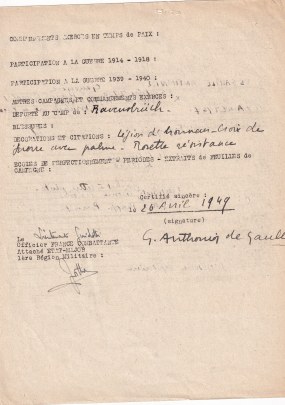 COMMANDEMENTS EXERCES EN TEMPS de PAIX :
PARTICIPATION A LA GUERRE 1914 - 1918 :
PARTICIPATION A LA GUERRE 1939 - 1940 :
AUTRES CAMPAGNES ET COMMANDEMENTS EXERCES :
DEPORTE AU CAMP de : Ravensbrück
BLESSURES :
DECORATIONS ET CITATIONS : Légion d'honneur - Croix de
guerre avec palme. Rosette résistance
ECOLES DE PERFECTIONNEMENT - PERIODES - EXTRAITS de FEUILLES de
Certifié sincère :
le 26 Avril 1949
(signature)
G. Anthonioz de Gaulle
Le Lieutenant
Officier FRANCE COMBATTANTE
Attaché ETAT-MAJOR
1ère Région Militaire :